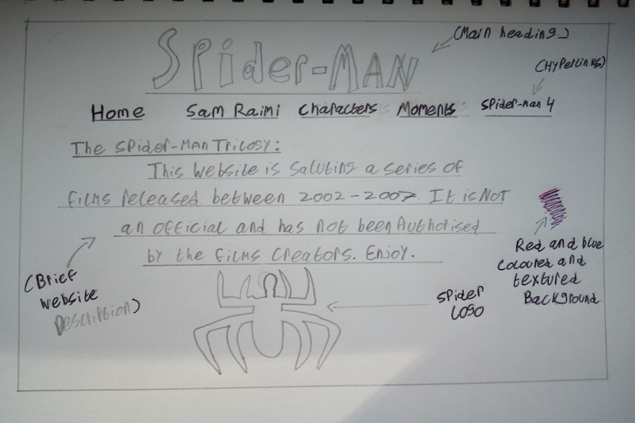 SPider-MAN
(Main heading)
(HYPerlinks)
Home Sam Raimi Characters Moments SPider-man 4
The SPider-MAN Trilogy:
This website is saluting a series of
films released between 2002-2007 It is Not
an official and has not been Authorised
by the films creators. Enjoy.
(Brief
website
Description)
Red and blue
coloured and
textured
Background
SPider
LOGO